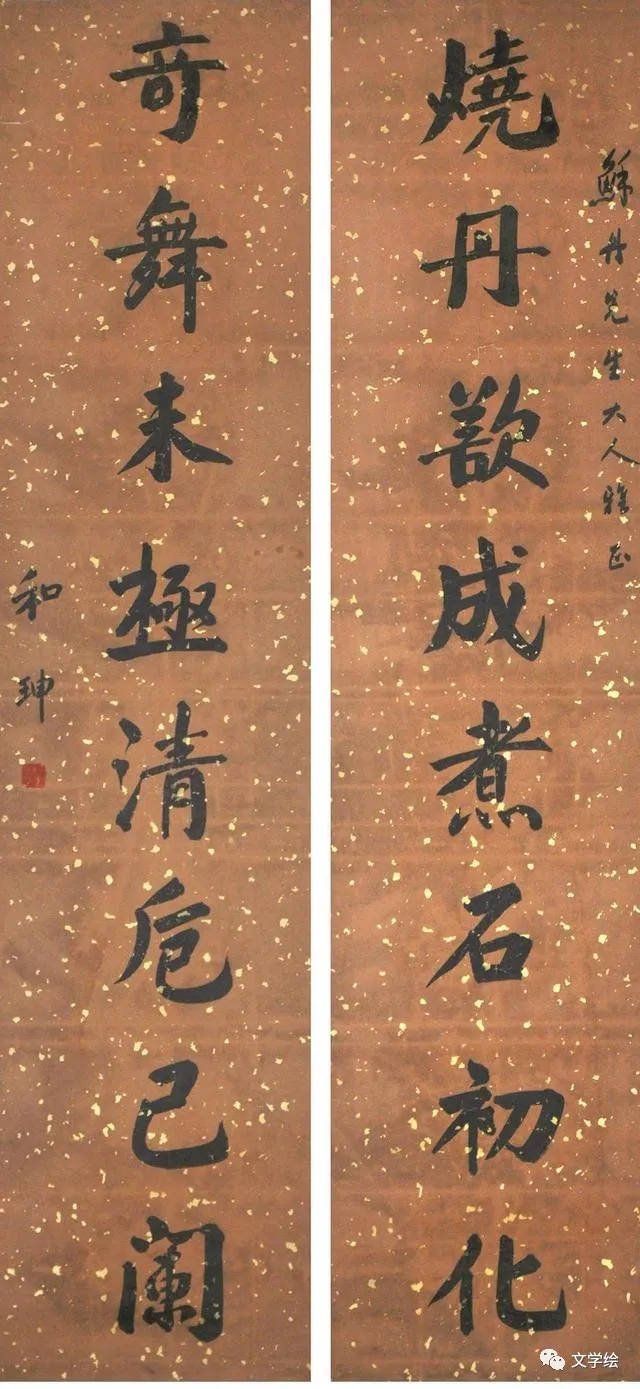 穌丹先生大人雅正
燒丹欲成煮石初化
奇舞未極清卮已闌
和珅
文学绘